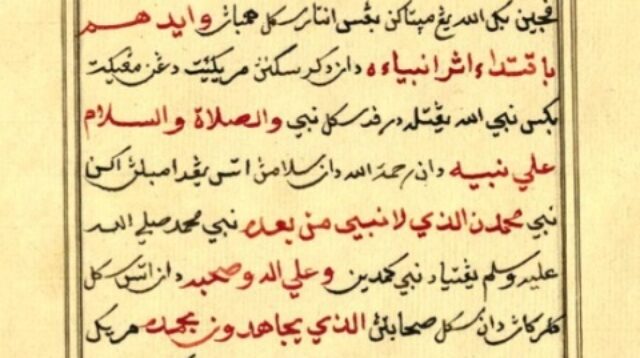 فجين بݢي الله يڠ مپتاكن بڠس انتارا سكل همباڽ وايدهم
باقتداء اثر انبياءه دان دكرسكنڽ مريكئيت دڠن مڠيكت
بكس نبي الله يڠتله درفد سكل نبي والصلاة والسلام
علي نبيه دان رحمة الله دان سلامڽ اتس يڠد امبلڽ اكن
نبي محمدن الذي لا نبي من بعده نبي محمد صلي الله
عليه وسلم يڠتياد نبي كمدين وعلي اله وصحبه دان اتس سكل
كلوركاڽ دان سكل صحابتڽ الذي يجاهدون بجهده مريكئ